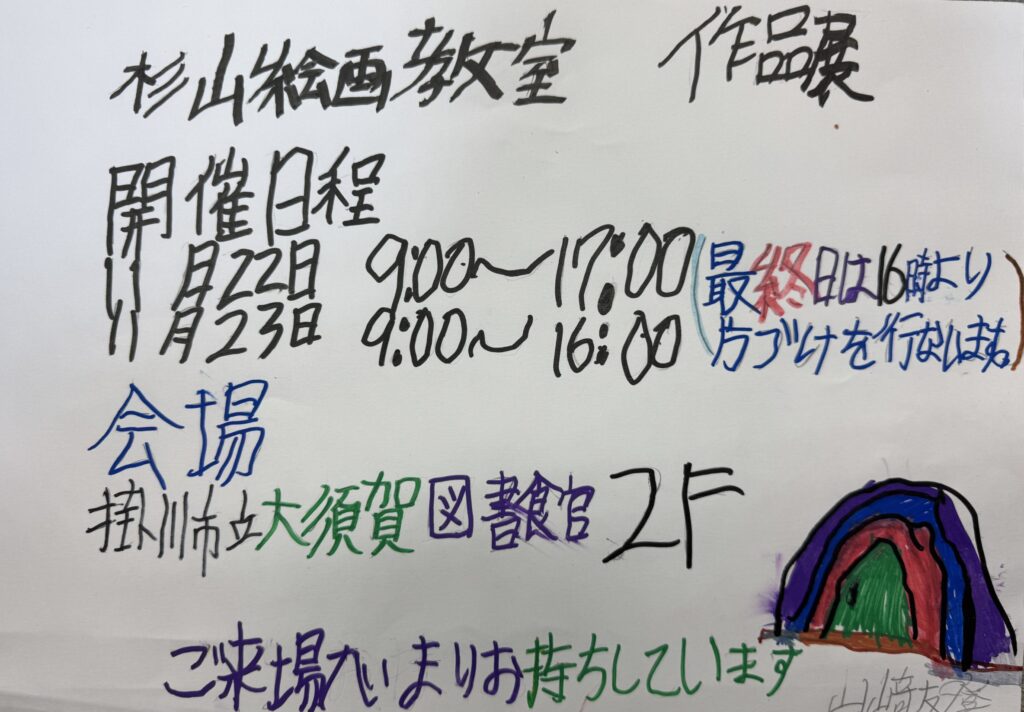 杉山絵画教室 作品展
開催日程
11月22日 9:00〜17:00
11月23日 9:00〜16:00
(最終日は16時より
片づけを行ないます。)
会場
掛川市立大須賀図書館 2F
ご来場心よりお持ちしています